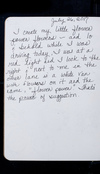 July 26, 2017
I create my little flower
power [leave] - and lo
& behold while I was
driving today I was at a
red light and I look to the
right & next to me in the
other lane is a white van
with flowers on it and the
name "flower power". That's
the power of suggestion